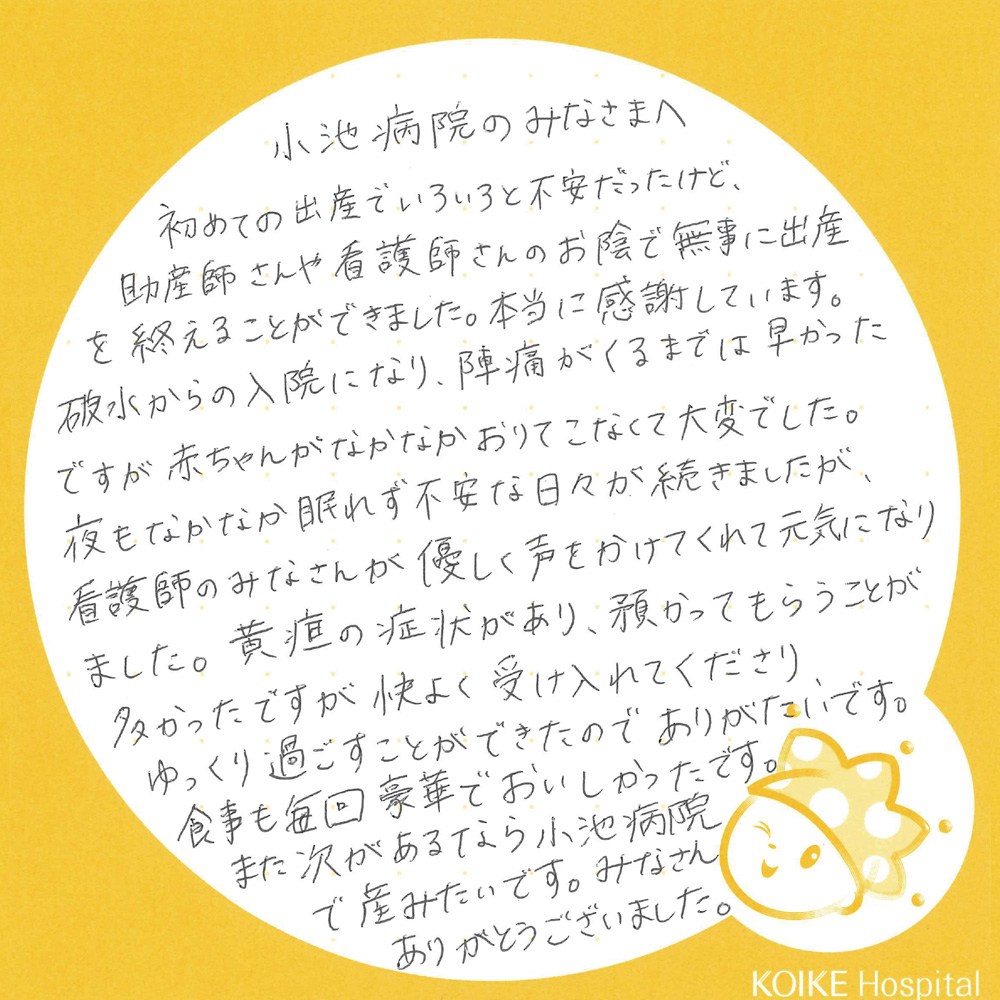 小池病院のみなさまへ
初めての出産でいろいろと不安だったけど、
助産師さんや看護師さんのお陰で無事に出産
を終えることができました。本当に感謝しています。
破水からの入院になり、陣痛がくるまでは早かった
ですが赤ちゃんがなかなかおりてこなくて大変でした。
夜もなかなか眠れず不安な日々が続きましたが、
看護師のみなさんが優しく声をかけてくれて元気になり
ました。黄疸の症状があり、預かってもらうことが
多かったですが快よく受け入れてくださり
ゆっくり過ごすことができたのでありがたいです。
食事も毎回豪華でおいしかったです。
また次があるなら小池病院
で産みたいです。みなさん
ありがとうございました。
KOIKE Hospital